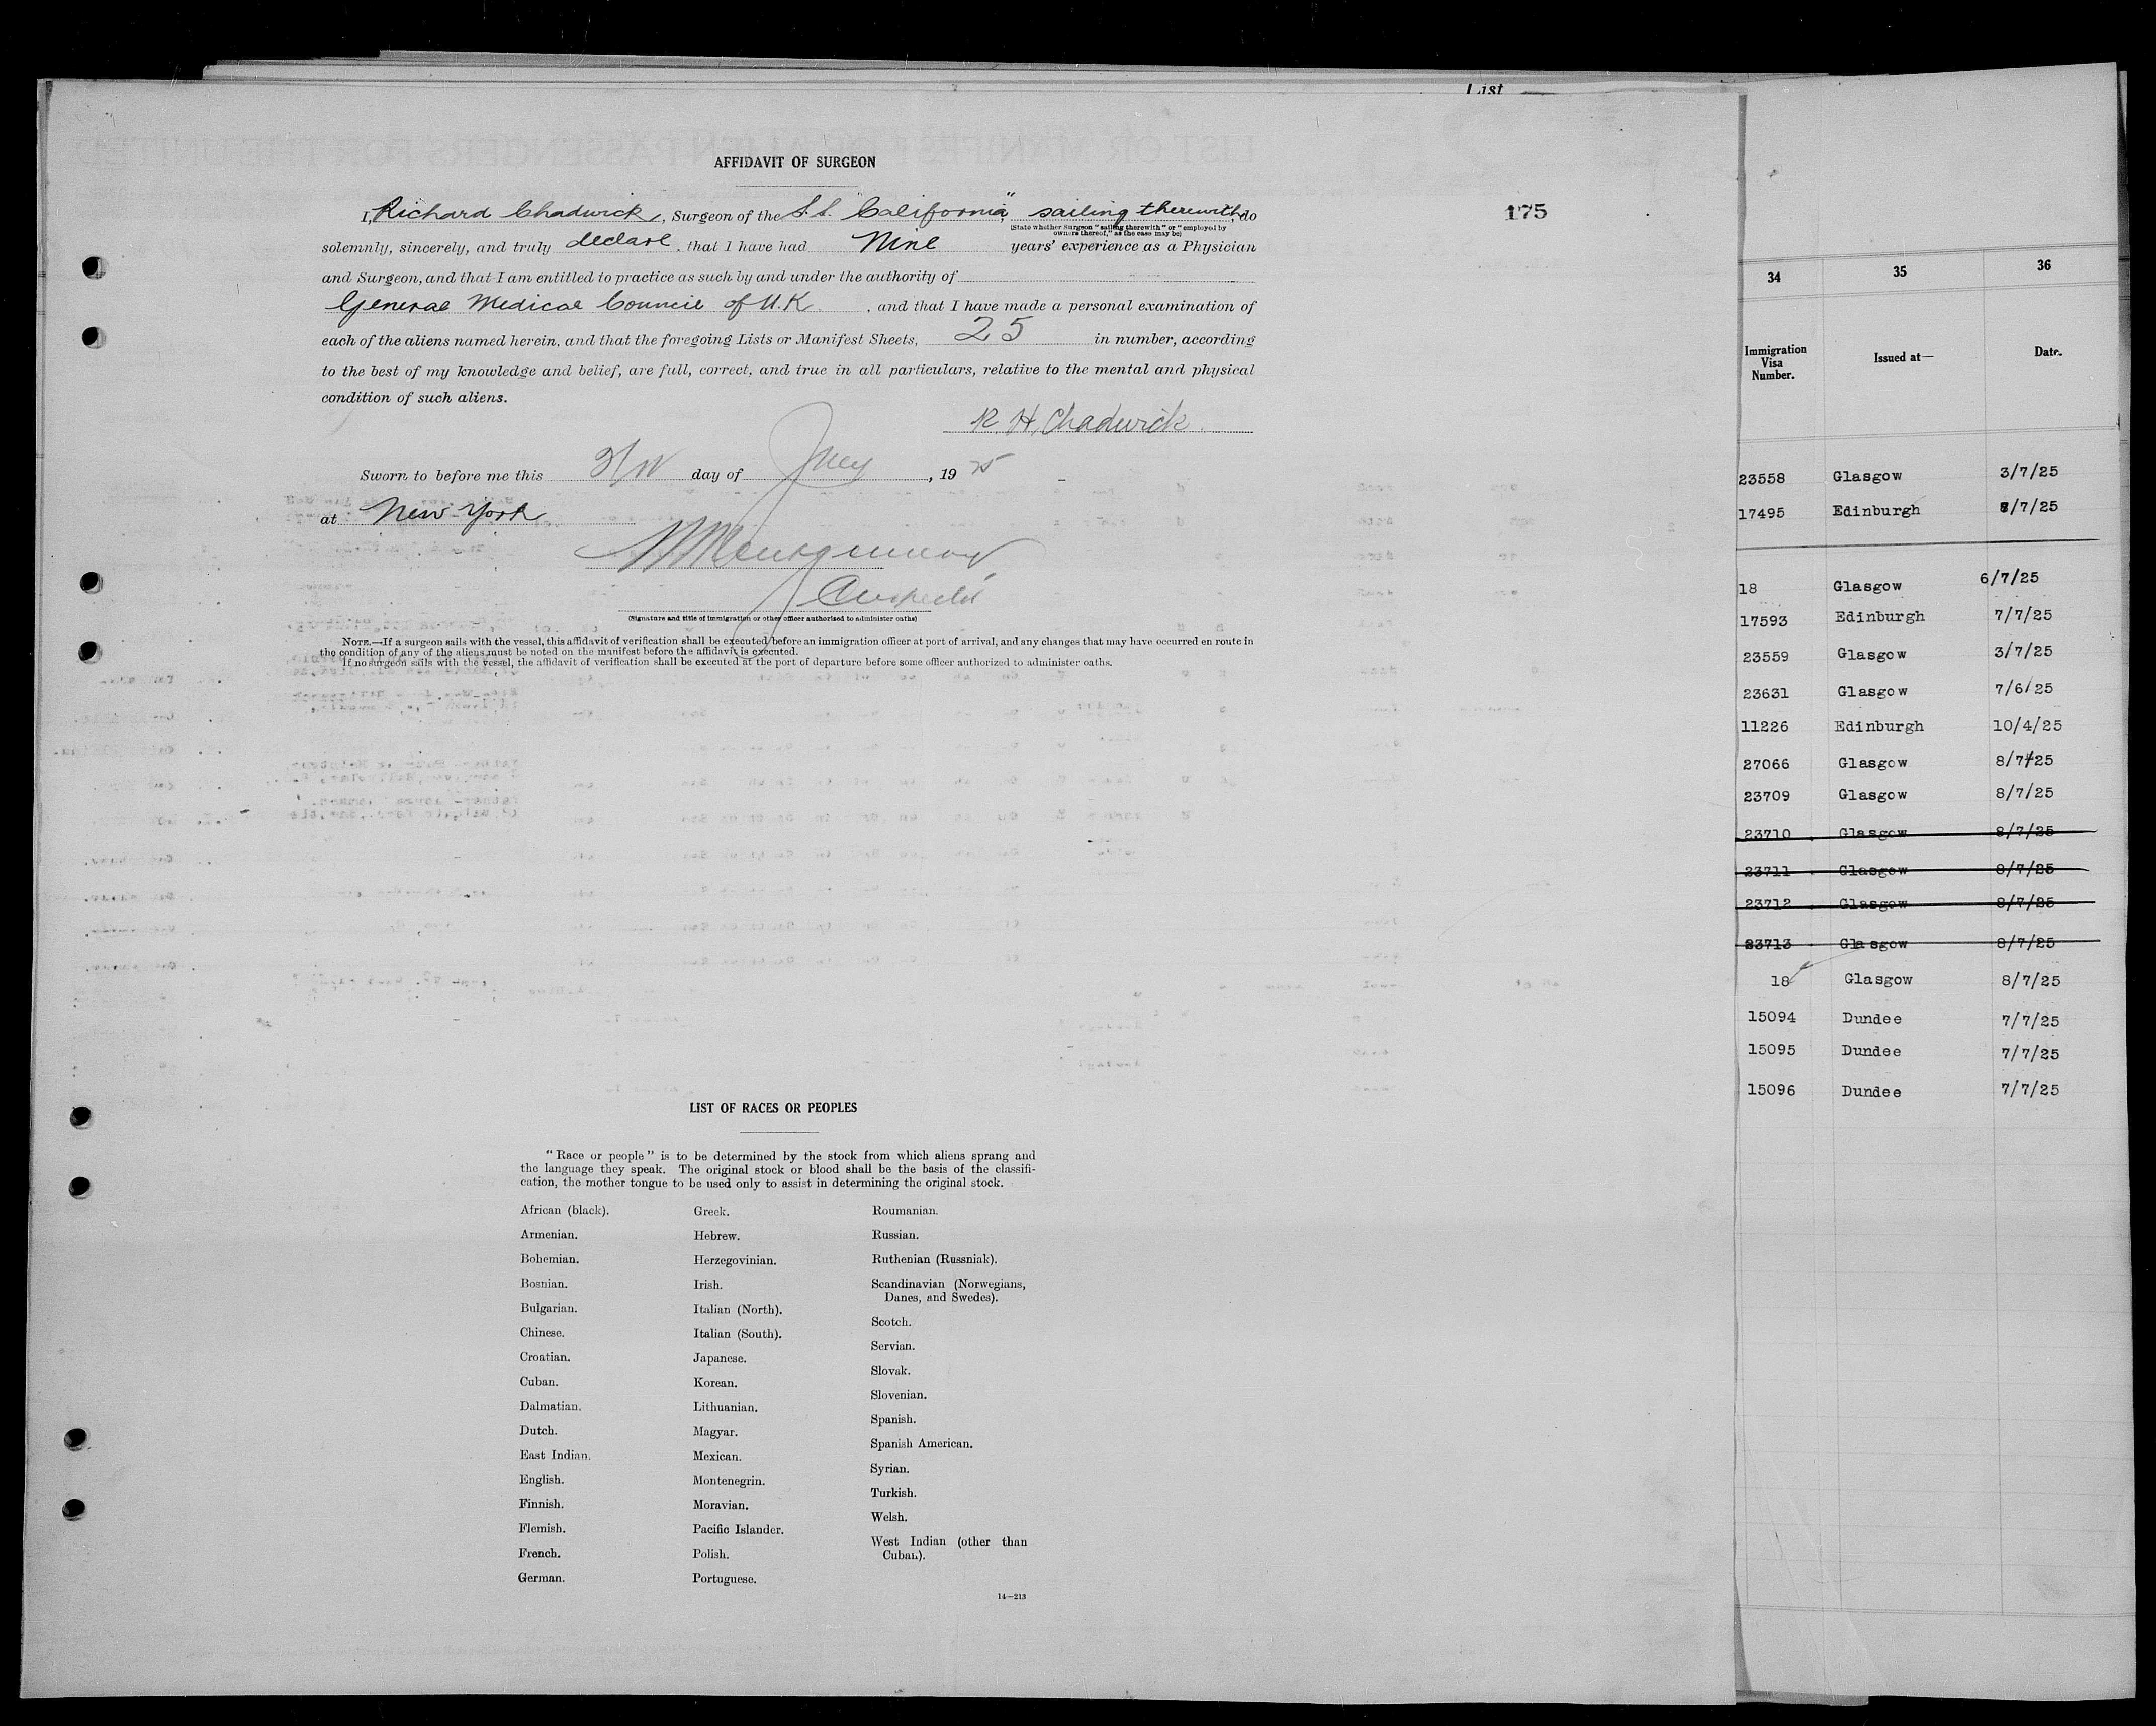 List
AFFIDAVIT OF SURGEON
175
I, Richard Chadwick, Surgeon of the S.S. "California", sailing therewith, do
(State whether Surgeon "sailing therewith" or "employed by
owners thereof," as the case may be)
solemnly, sincerely, and truly declare, that I have had Nine years' experience as a Physician
and Surgeon, and that I am entitled to practice as such by and under the authority of
General Medical Council of U.K., and that I have made a personal examination of
each of the aliens named herein, and that the foregoing Lists or Manifest Sheets, 25 in number, according
to the best of my knowledge and belief, are full, correct, and true in all particulars, relative to the mental and physical
condition of such aliens.
R. H. Chadwick
Sworn to before me this day of , 19 25
at New York
(Signature and title of immigration or other officer authorized to administer oaths)
NOTE.—If a surgeon sails with the vessel, this affidavit of verification shall be executed before an immigration officer at port of arrival, and any changes that may have occurred en route in
the condition of any of the aliens must be noted on the manifest before the affidavit is executed.
If no surgeon sails with the vessel, the affidavit of verification shall be executed at the port of departure before some officer authorized to administer oaths.
LIST OF RACES OR PEOPLES
"Race or people" is to be determined by the stock from which aliens sprang and
the language they speak. The original stock or blood shall be the basis of the classifi-
cation, the mother tongue to be used only to assist in determining the original stock.
African (black).
Armenian.
Bohemian.
Bosnian.
Bulgarian.
Chinese.
Croatian.
Cuban.
Dalmatian.
Dutch.
East Indian.
English.
Finnish.
Flemish.
French.
German.
Greek.
Hebrew.
Herzegovinian.
Irish.
Italian (North).
Italian (South).
Japanese.
Korean.
Lithuanian.
Magyar.
Mexican.
Montenegrin.
Moravian.
Pacific Islander.
Polish.
Portuguese.
Roumanian.
Russian.
Ruthenian (Russniak).
Scandinavian (Norwegians,
Danes, and Swedes).
Scotch.
Servian.
Slovak.
Slovenian.
Spanish.
Spanish American.
Syrian.
Turkish.
Welsh.
West Indian (other than
Cuban).
14—213
34 35 36
Immigration
Visa
Number.
Issued at—
Date.
23558 Glasgow 3/7/25
17495 Edinburgh 8/7/25
18 Glasgow 6/7/25
17593 Edinburgh 7/7/25
23559 Glasgow 3/7/25
23631 Glasgow 7/6/25
11226 Edinburgh 10/4/25
27066 Glasgow 8/7/25
23709 Glasgow 8/7/25
23710 Glasgow 8/7/25
23711 Glasgow 8/7/25
23712 Glasgow 8/7/25
23713 Glasgow 8/7/25
18 Glasgow 8/7/25
15094 Dundee 7/7/25
15095 Dundee 7/7/25
15096 Dundee 7/7/25